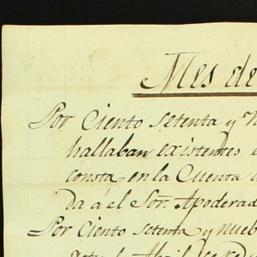 Mes de
Por Ciento setenta y
hallaban existentes
consta en la Cuenta
da á el Sor. Apoderad
Por Ciento setenta y nueb